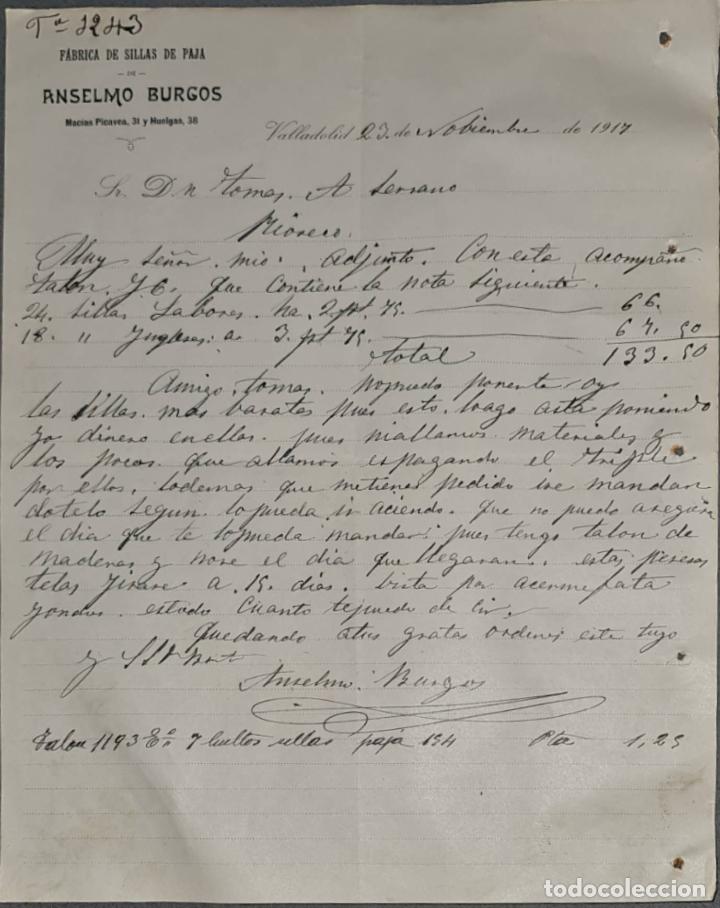 Tn 1243
FÁBRICA DE SILLAS DE PAJA
— DE —
ANSELMO BURGOS
Macías Picavea, 31 y Huelgas, 38
Valladolid 23 de Nobiembre de 1917
Sr. Dn Tomas. A Serrano
Rioseco.
Muy Señor. mio: adjunto. Con este acompaño
talon. que Contiene la nota siguiente.
24. Sillas Labores. ha. 2 pt 75. 66.
18. " Ynglesas: a 3. pt 75. 67.50
total 133.50
Amigo. tomas. nopuedo ponerte oy
las sillas. mas baratas pues esto. ago asta poniendo
yo dinero enellos. pues niallamos materiales y
los pocos. que allamos espagando el triple
por ellos. lodemas que metienes pedido ire mandan
dotelo segun lopueda ir aciendo. que no puedo asegurar
el dia que te lopueda mandar: pues tengo talon de
maderas y nose el dia que llegaran. estas pesetas
telas jirare a. 15. dias. bista por
estado Cuanto tepuedo decir.
quedando atus gratas ordenes este tuyo
y
Anselmo. Burgos
Talon 1193 7 bultos sillas paja 154 Pta 1,25
todocoleccion